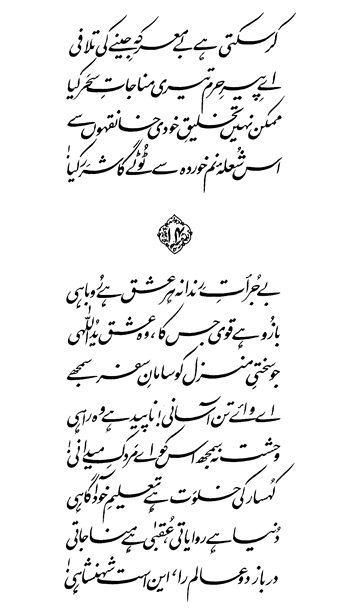 کر سکتی ہے بے معرکہ جینے کی تلافی
اے پیرِ حرم تیری مناجاتِ سحر کیا
ممکن نہیں تخلیقِ خودی خانقہوں سے
اس شعلۂ نم خوردہ سے ٹوٹے گا شرر کیا!
۱۴
بے جُرأتِ رِندانہ ہر عشق ہے رُوباہی
بازُو ہے قوی جس کا، وہ عشق یدُاللّٰہی
جو سختیِ منزل کو سامانِ سفر سمجھے
اے وائے تن آسانی! ناپید ہے وہ راہی
وحشت نہ سمجھ اس کو اے مَردکِ میدانی!
کُہسار کی خلوَت ہے تعلیمِ خود آگاہی
دُنیا ہے روایاتی، عُقبیٰ ہے مناجاتی
در باز دو عالم را، این است شہنشاہی!